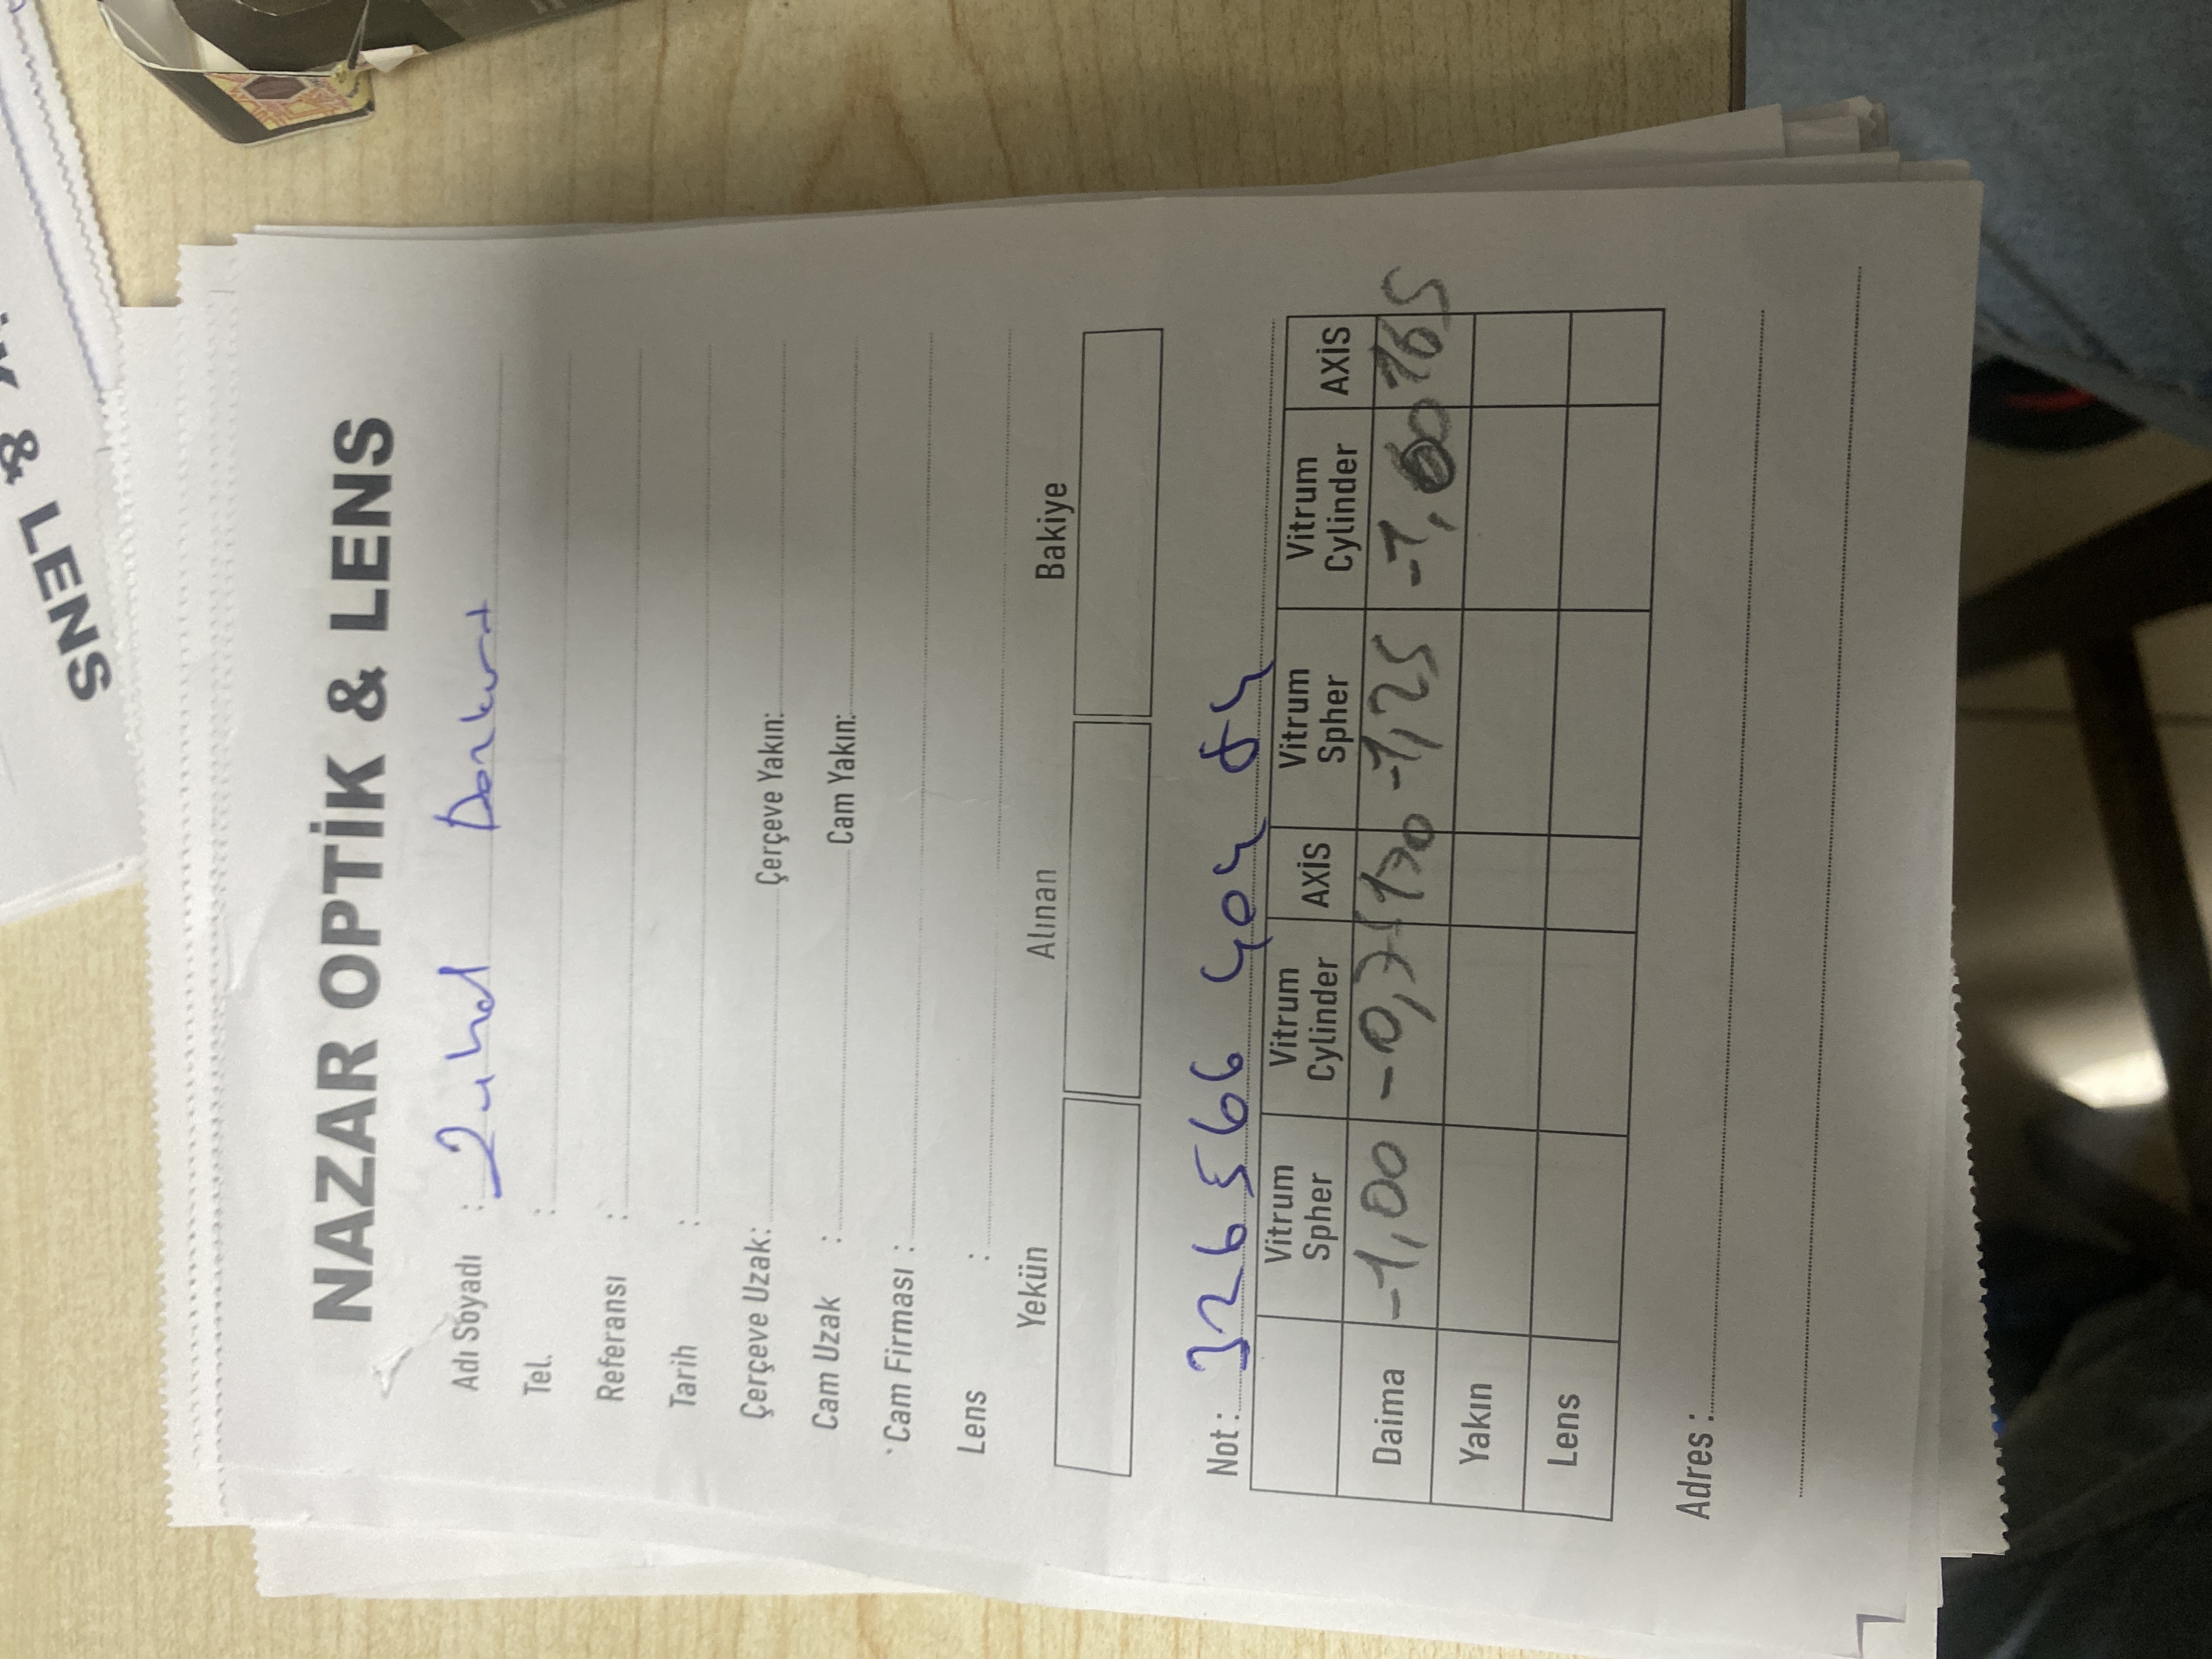 K & LENS
NAZAR OPTİK & LENS
Adı Soyadı : Zuhal Bozkurt
Tel. :
Referansı :
Tarih :
Çerçeve Uzak: Çerçeve Yakın:
Cam Uzak : Cam Yakın:
Cam Firması :
Lens :
Yekün Alınan Bakiye
Not: 326566 404 84
Vitrum Spher Vitrum Cylinder AXİS Vitrum Spher Vitrum Cylinder AXİS
Daima -1,00 -0,75 170 -1,25 165
Yakın
Lens
Adres :